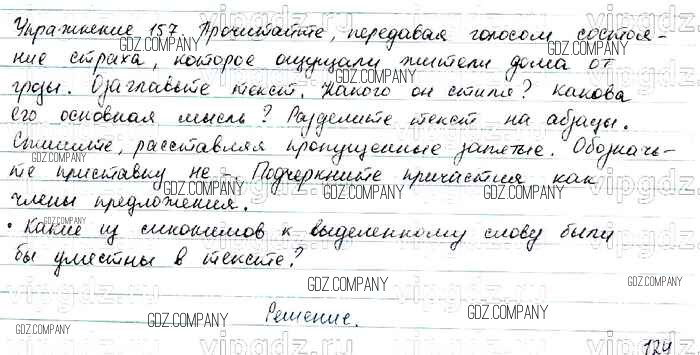 Упражнение 157. Прочитайте, передавая голосом состоя-
ние страха, которое ощущали жители дома от
грозы. Озаглавьте текст. Какого он стиля? Какова
его основная мысль? Разделите текст на абзацы.
Спишите, расставляя пропущенные запятые. Обозначь-
те приставку не-. Подчеркните причастия как
члены предложения.
• Какие из синонимов к выделенному слову были
бы уместны в тексте?
Решение.
124
GDZ.COMPANY
vipgdz.ru